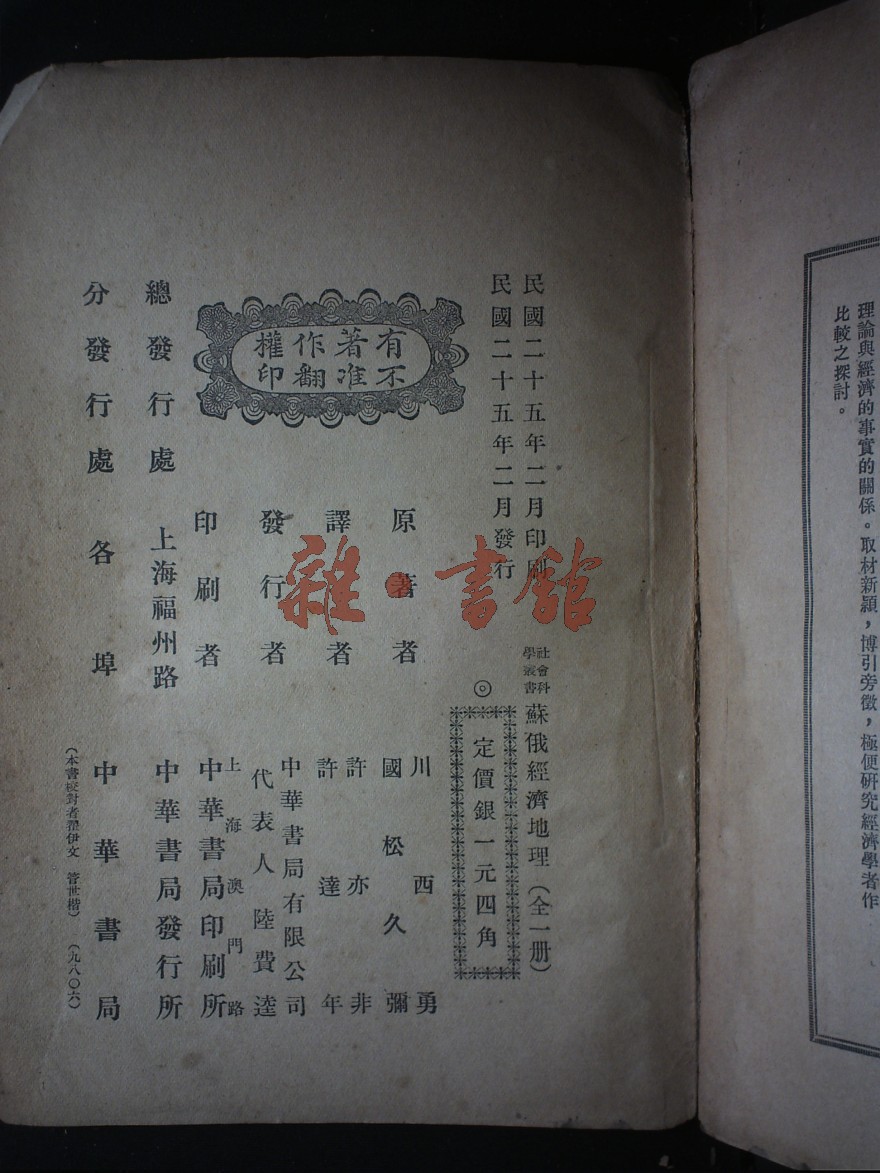 理論與經濟的事實的關係。取材新穎,博引旁徵,極便研究經濟學者作
比較之探討。
民國二十五年二月印刷
民國二十五年二月發行
社會科
學叢書
蘇俄經濟地理(全一册)
◎
定價銀一元四角
有不
著准
作翻
權印
原著者
川西勇
國松久彌
譯者
許亦非
許達年
發行者
中華書局有限公司
代表人陸費逵
印刷者
上海澳門路
中華書局印刷所
總發行處
上海福州路
中華書局發行所
分發行處
各埠
中華書局
(本書校對者翟伊文 管世楷)(九八〇六)
雜·書館